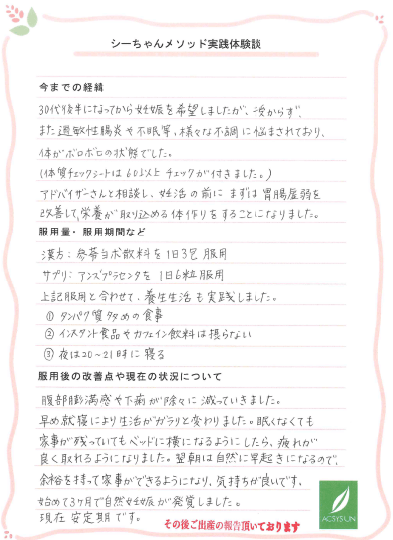 シーちゃんメソッド実践体験談
今までの経緯
30代後半になってから妊娠を希望しましたが、授からず、
また過敏性腸炎や不眠等、様々な不調に悩まされており、
体がボロボロの状態でした。
(体質チェックシートは60以上チェックが付きました。)
アドバイザーさんと相談し、妊活の前にまずは胃腸虚弱を
改善して、栄養が取り込める体作りをすることになりました。
服用量・服用期間など
漢方：参蒂当朮散料を1日3包服用
サプリ：アンズプラセンタを1日6粒服用
上記服用と合わせて、養生生活も実践しました。
① タンパク質多めの食事
② インスタント食品やカフェイン飲料は摂らない
③ 夜は20〜21時に寝る
服用後の改善点や現在の状況について
腹部膨満感や下痢が徐々に減っていきました。
早め就寝により生活がガラリと変わりました。眠くなくても
家事が残っていてもベッドに横になるようにしたら、疲れが
良く取れるようになりました。翌朝は自然に早起きになるので、
余裕を持って家事ができるようになり、気持ちが良いです。
始めて3ヶ月で自然妊娠が発覚しました。
現在 安定期です。
その後ご出産の報告頂いております
ACSYSUN